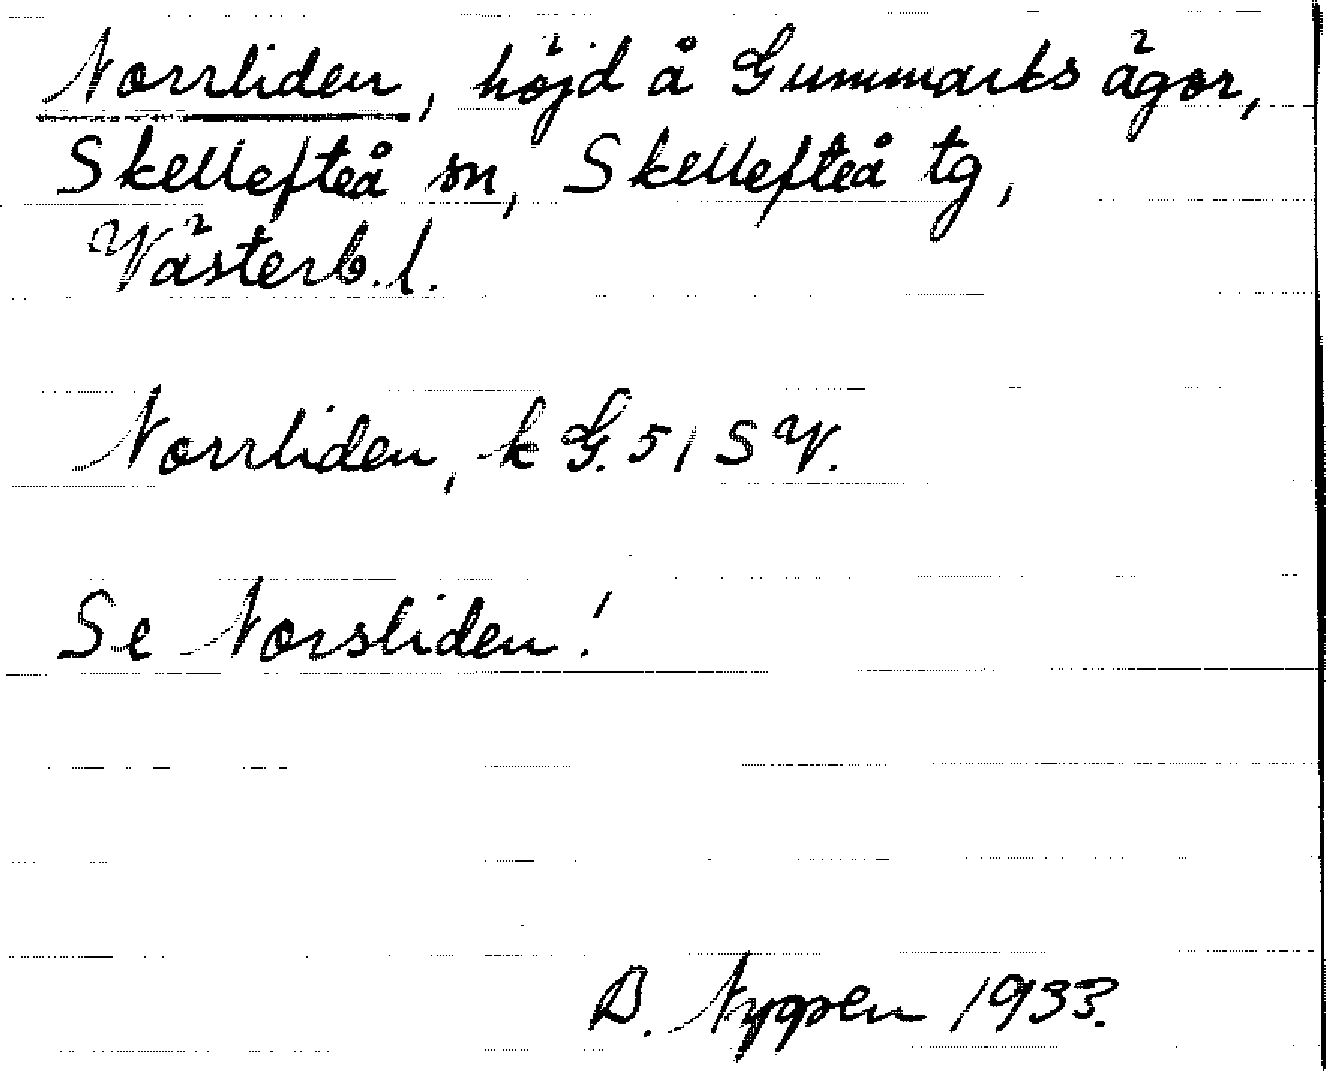 Norrliden, höjd å Gummarks ägor,
Skellefteå sn, Skellefteå tg,
Västerb. l.
Norrliden, k G. 51 SV.
Se Norsliden!
D. Nyppen 1933.